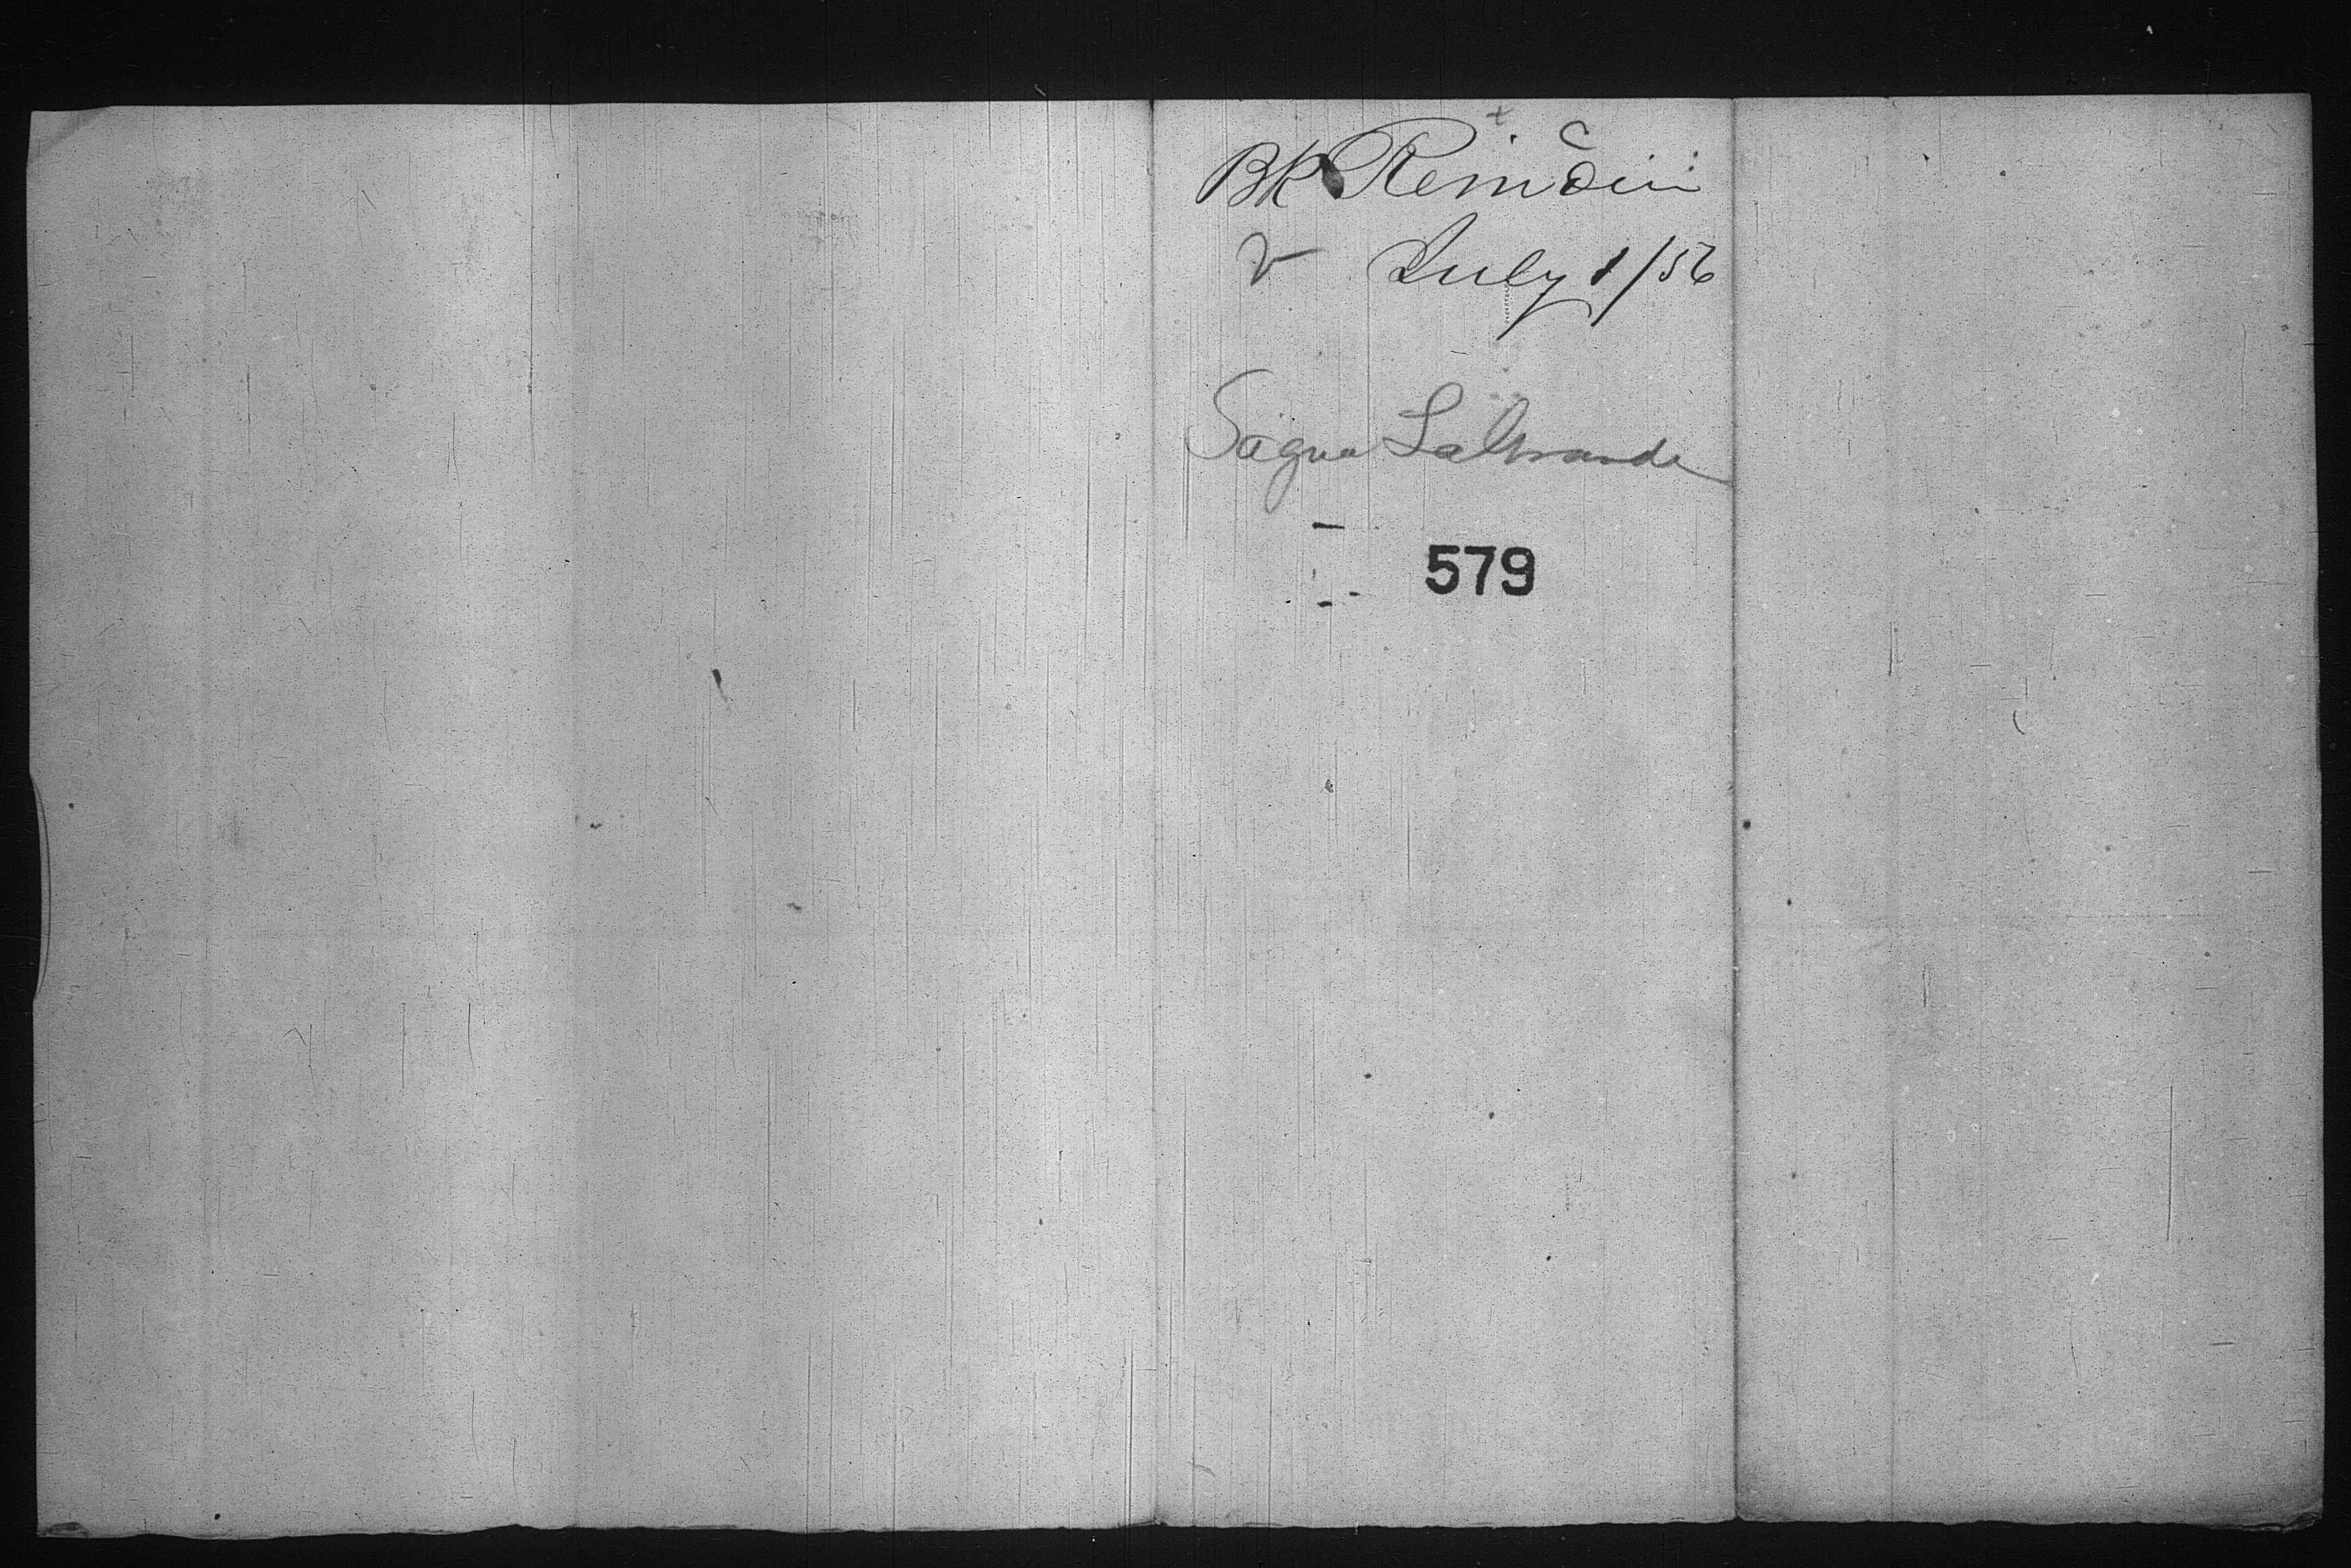 Bk Reindeer
July 1/56
Sagua La Grande
579